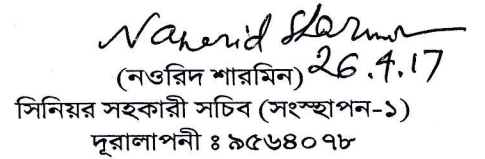 Naherid Sharmin
(নওরিদ শারমিন) 26.4.17
সিনিয়র সহকারী সচিব (সংস্হাপন-১)
দূরালাপনী ঃ ৯৫৬৪০৭৮